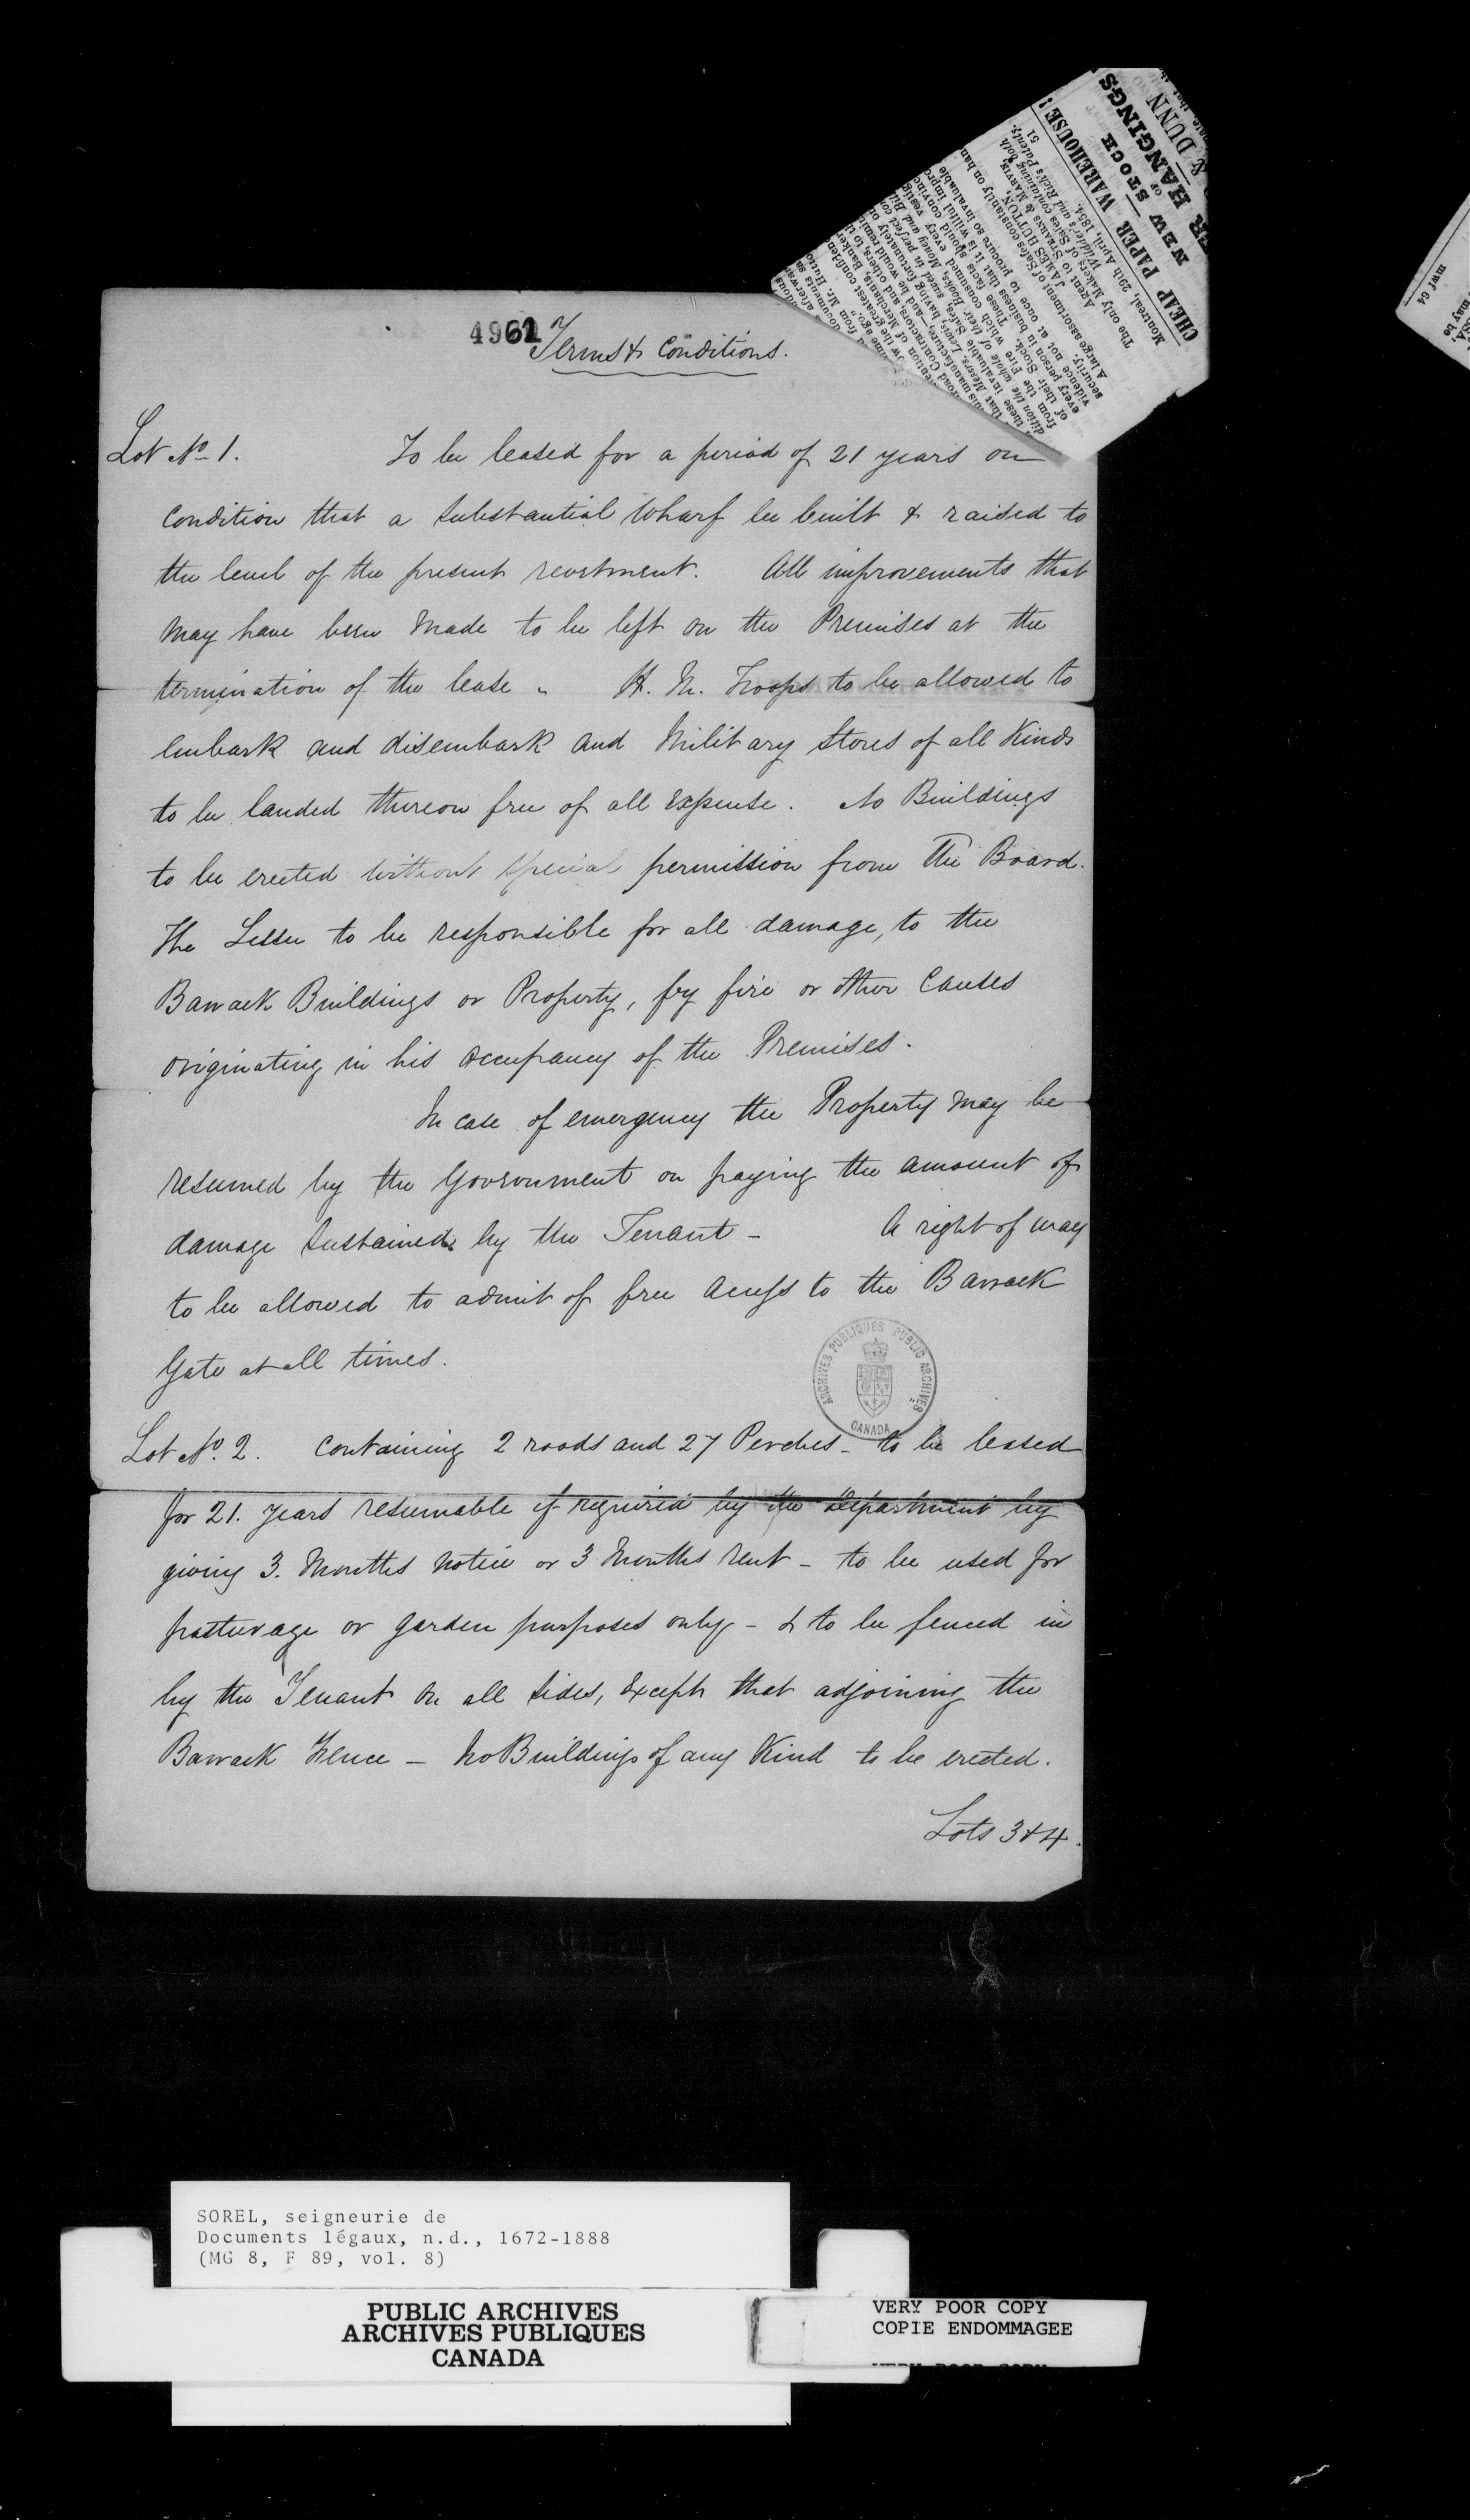 4961
Terms & Conditions.
Lot No. 1. To be leased for a period of 21 years on
condition that a substantial Wharf be built & raised to
the level of the present revetment. All improvements that
may have been made to be left on the Premises at the
termination of the lease. H. M. Troops to be allowed to
embark and disembark and Military Stores of all Kinds
to be landed thereon free of all expense. No Buildings
to be erected without special permission from the Board.
The Lessee to be responsible for all damage, to the
Barrack Buildings or Property, by fire or other Causes
originating in his occupancy of the Premises.
In case of emergency the Property may be
resumed by the Government on paying the amount of
damage sustained by the Tenant - A right of way
to be allowed to admit of free access to the Barrack
Gate at all times.
Lot No. 2. Containing 2 roods and 27 Perches - to be leased
for 21. years resumable if required by the Department by
giving 3. Months notice or 3 Months rent - to be used for
pasturage or garden purposes only - & to be fenced in
by the Tenant on all sides, except that adjoining the
Barrack Fence - No Buildings of any Kind to be erected.
Lots 3 & 4.
ARCHIVES PUBLIQUES PUBLIC ARCHIVES
CANADA
A large assortment of Safes constantly on han
JAMES HUTTON,
Agent to STEARNS & MARVIN,
The only Makers of Safes containing both
Wilder's and Rich's Patents.
Montreal, 29th April, 1854. 51
CHEAP PAPER WAREHOUSE!
NEW STOCK
OF
ER HANGINGS
& DUNN
mwf 64
may be
SOREL, seigneurie de
Documents légaux, n.d., 1672-1888
(MG 8, F 89, vol. 8)
PUBLIC ARCHIVES
ARCHIVES PUBLIQUES
CANADA
VERY POOR COPY
COPIE ENDOMMAGEE
VERY POOR COPY